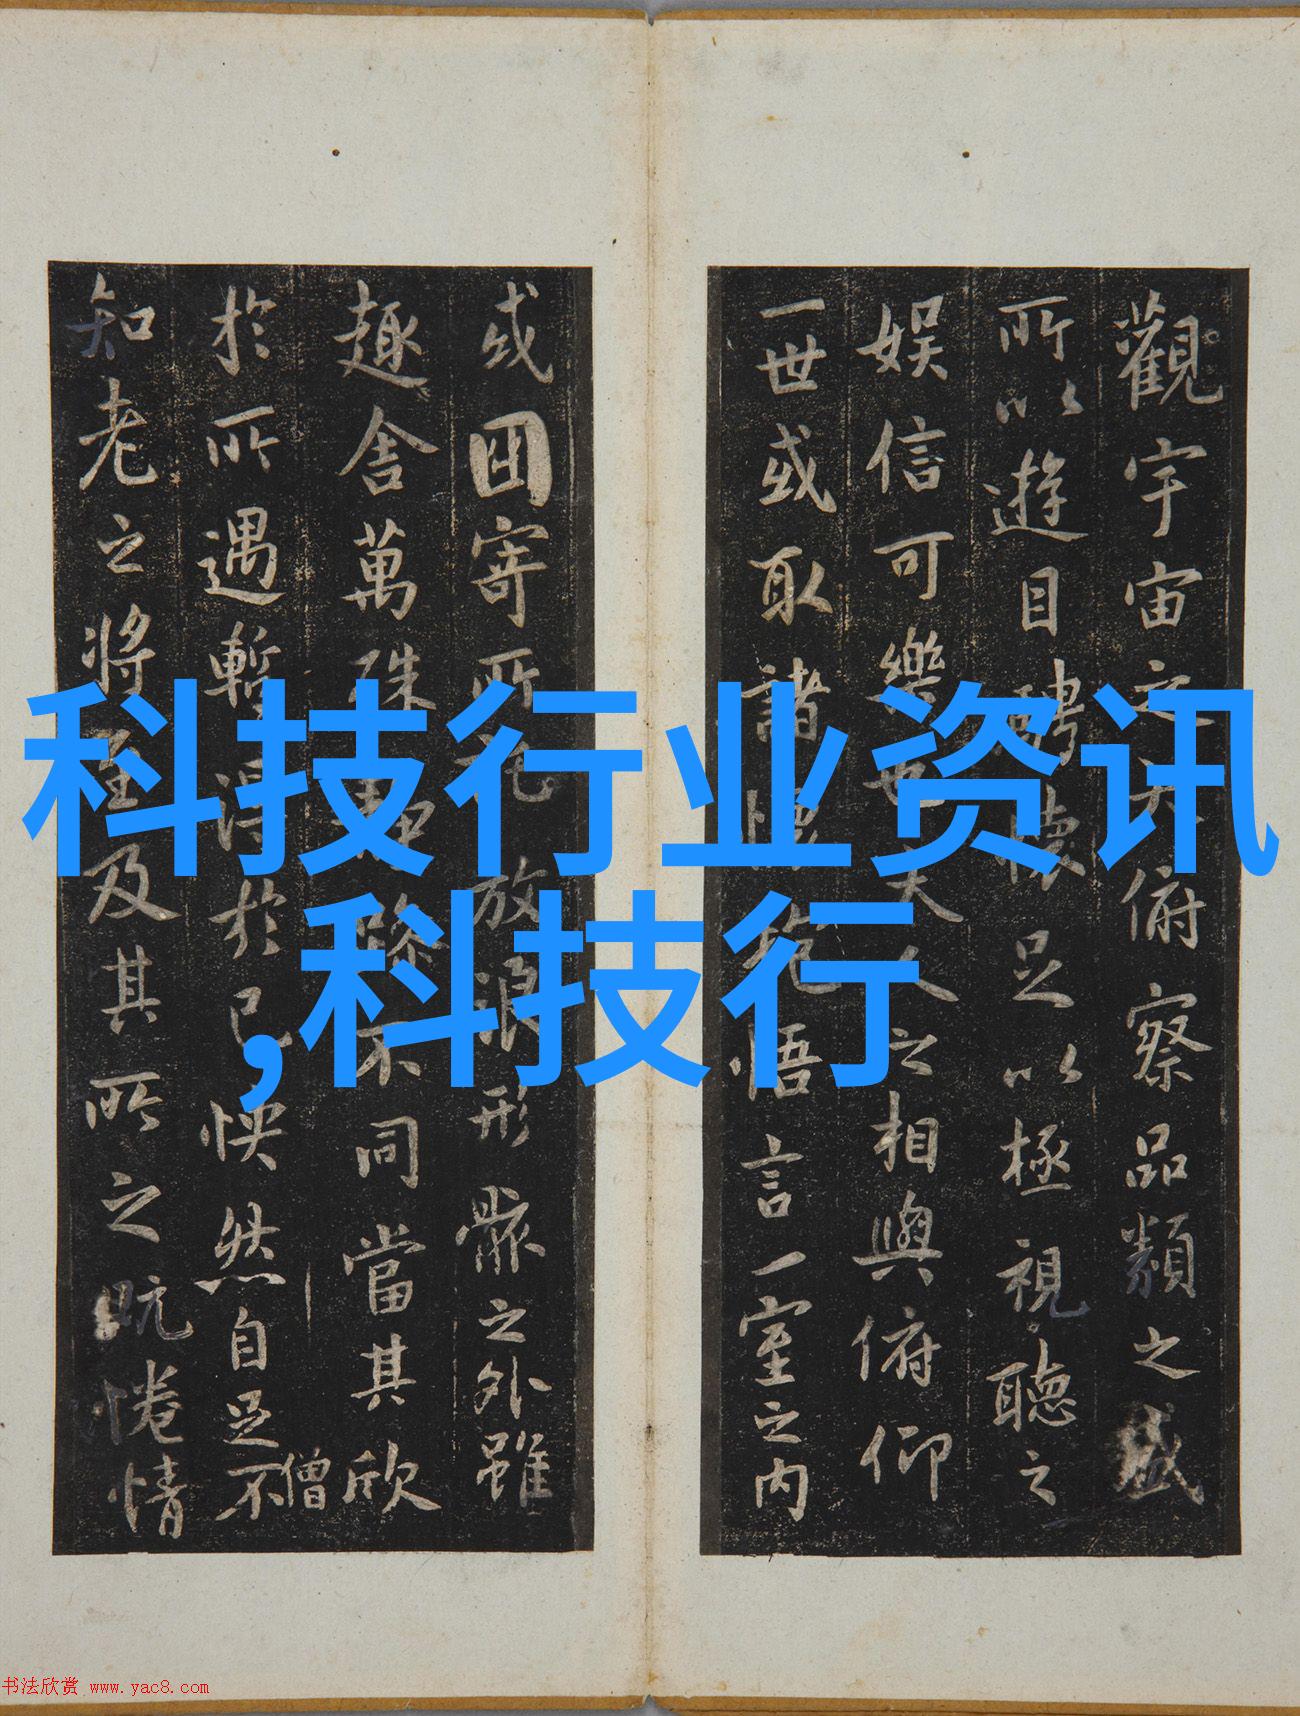 科技行业资讯
,科技行
觀宇宙之大俯察品類之盛
所以遊目騁懷足以極視聽之
娱信可樂也夫人之相與俯仰
一世或取諸懷抱悟言一室之内
或囙寄所託放浪形骸之外雖
趣舍萬殊静躁不同當其欣
僧
於所遇暫得於己怏然自足不
知老之將至及其所之既惓情
书法欣赏 www.yac8.com